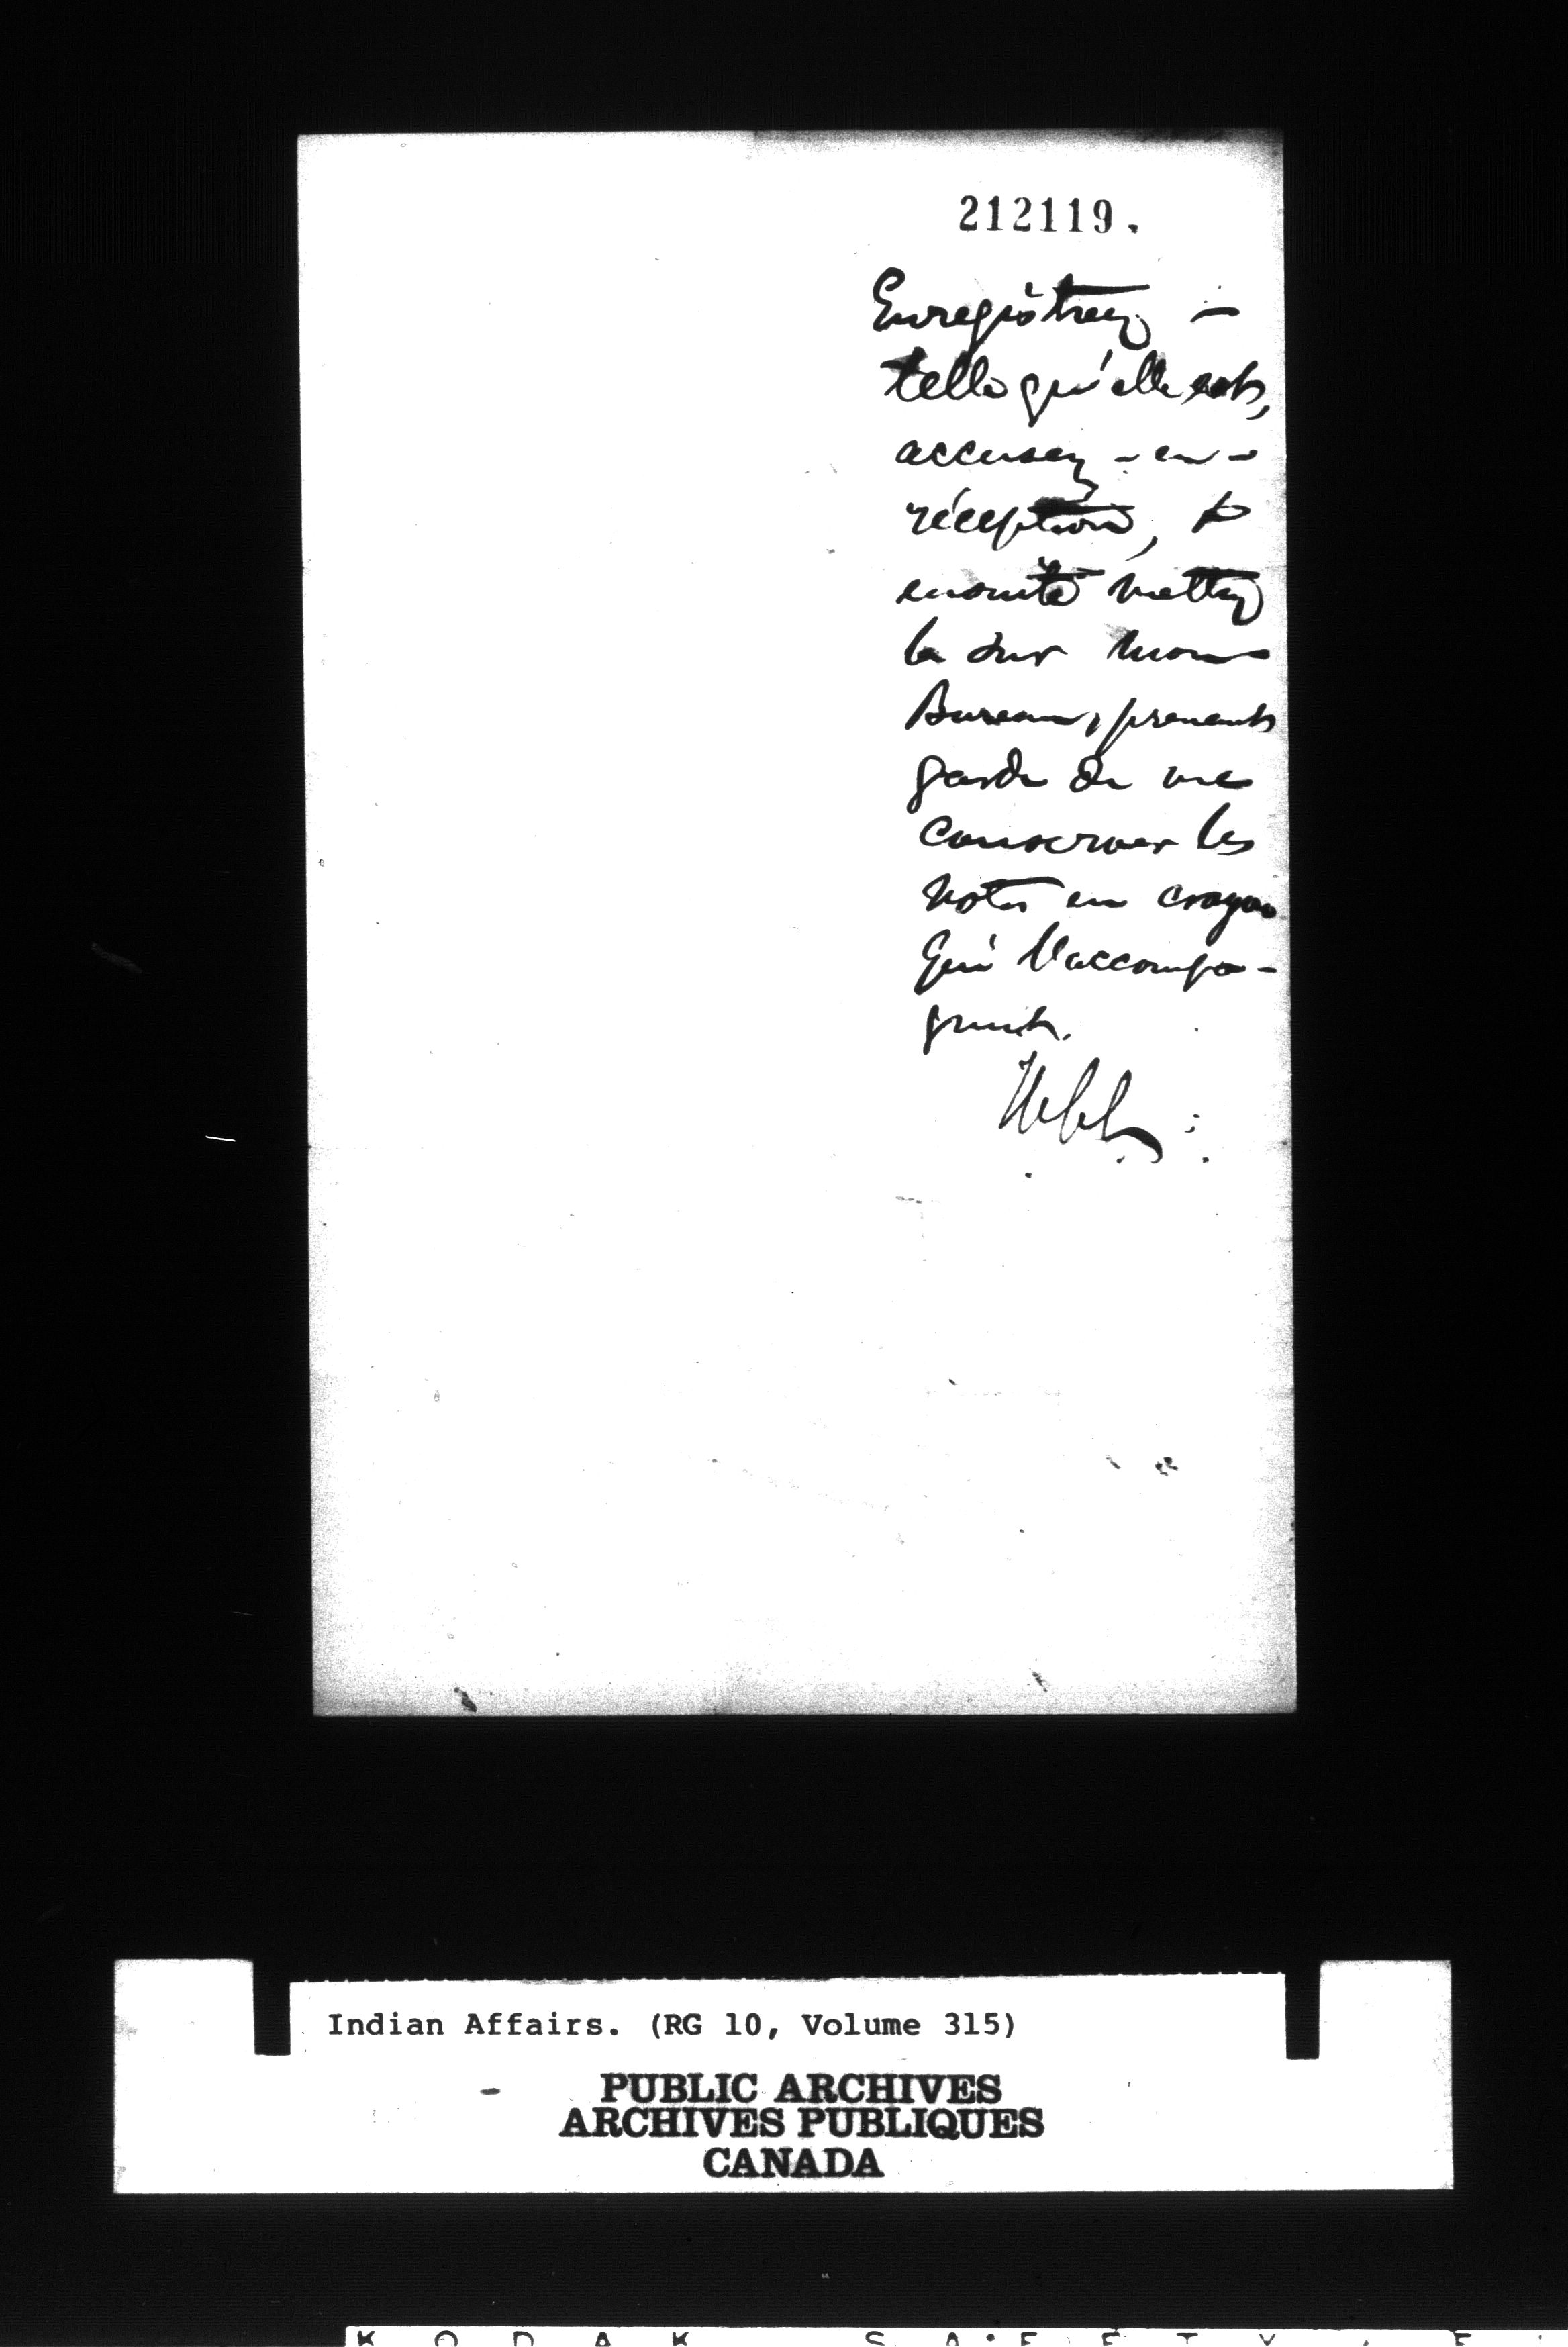 212119.
Enregistrez -
telle qu'elle est,
accusez - en -
réception, &
ensuite mettez
la sur mon
Bureau, prenant
garde de me
conserver les
notes en crayon
qui l'accompa-
gnent.
Indian Affairs. (RG 10, Volume 315)
PUBLIC ARCHIVES
ARCHIVES PUBLIQUES
CANADA
KODAK SAFETY F